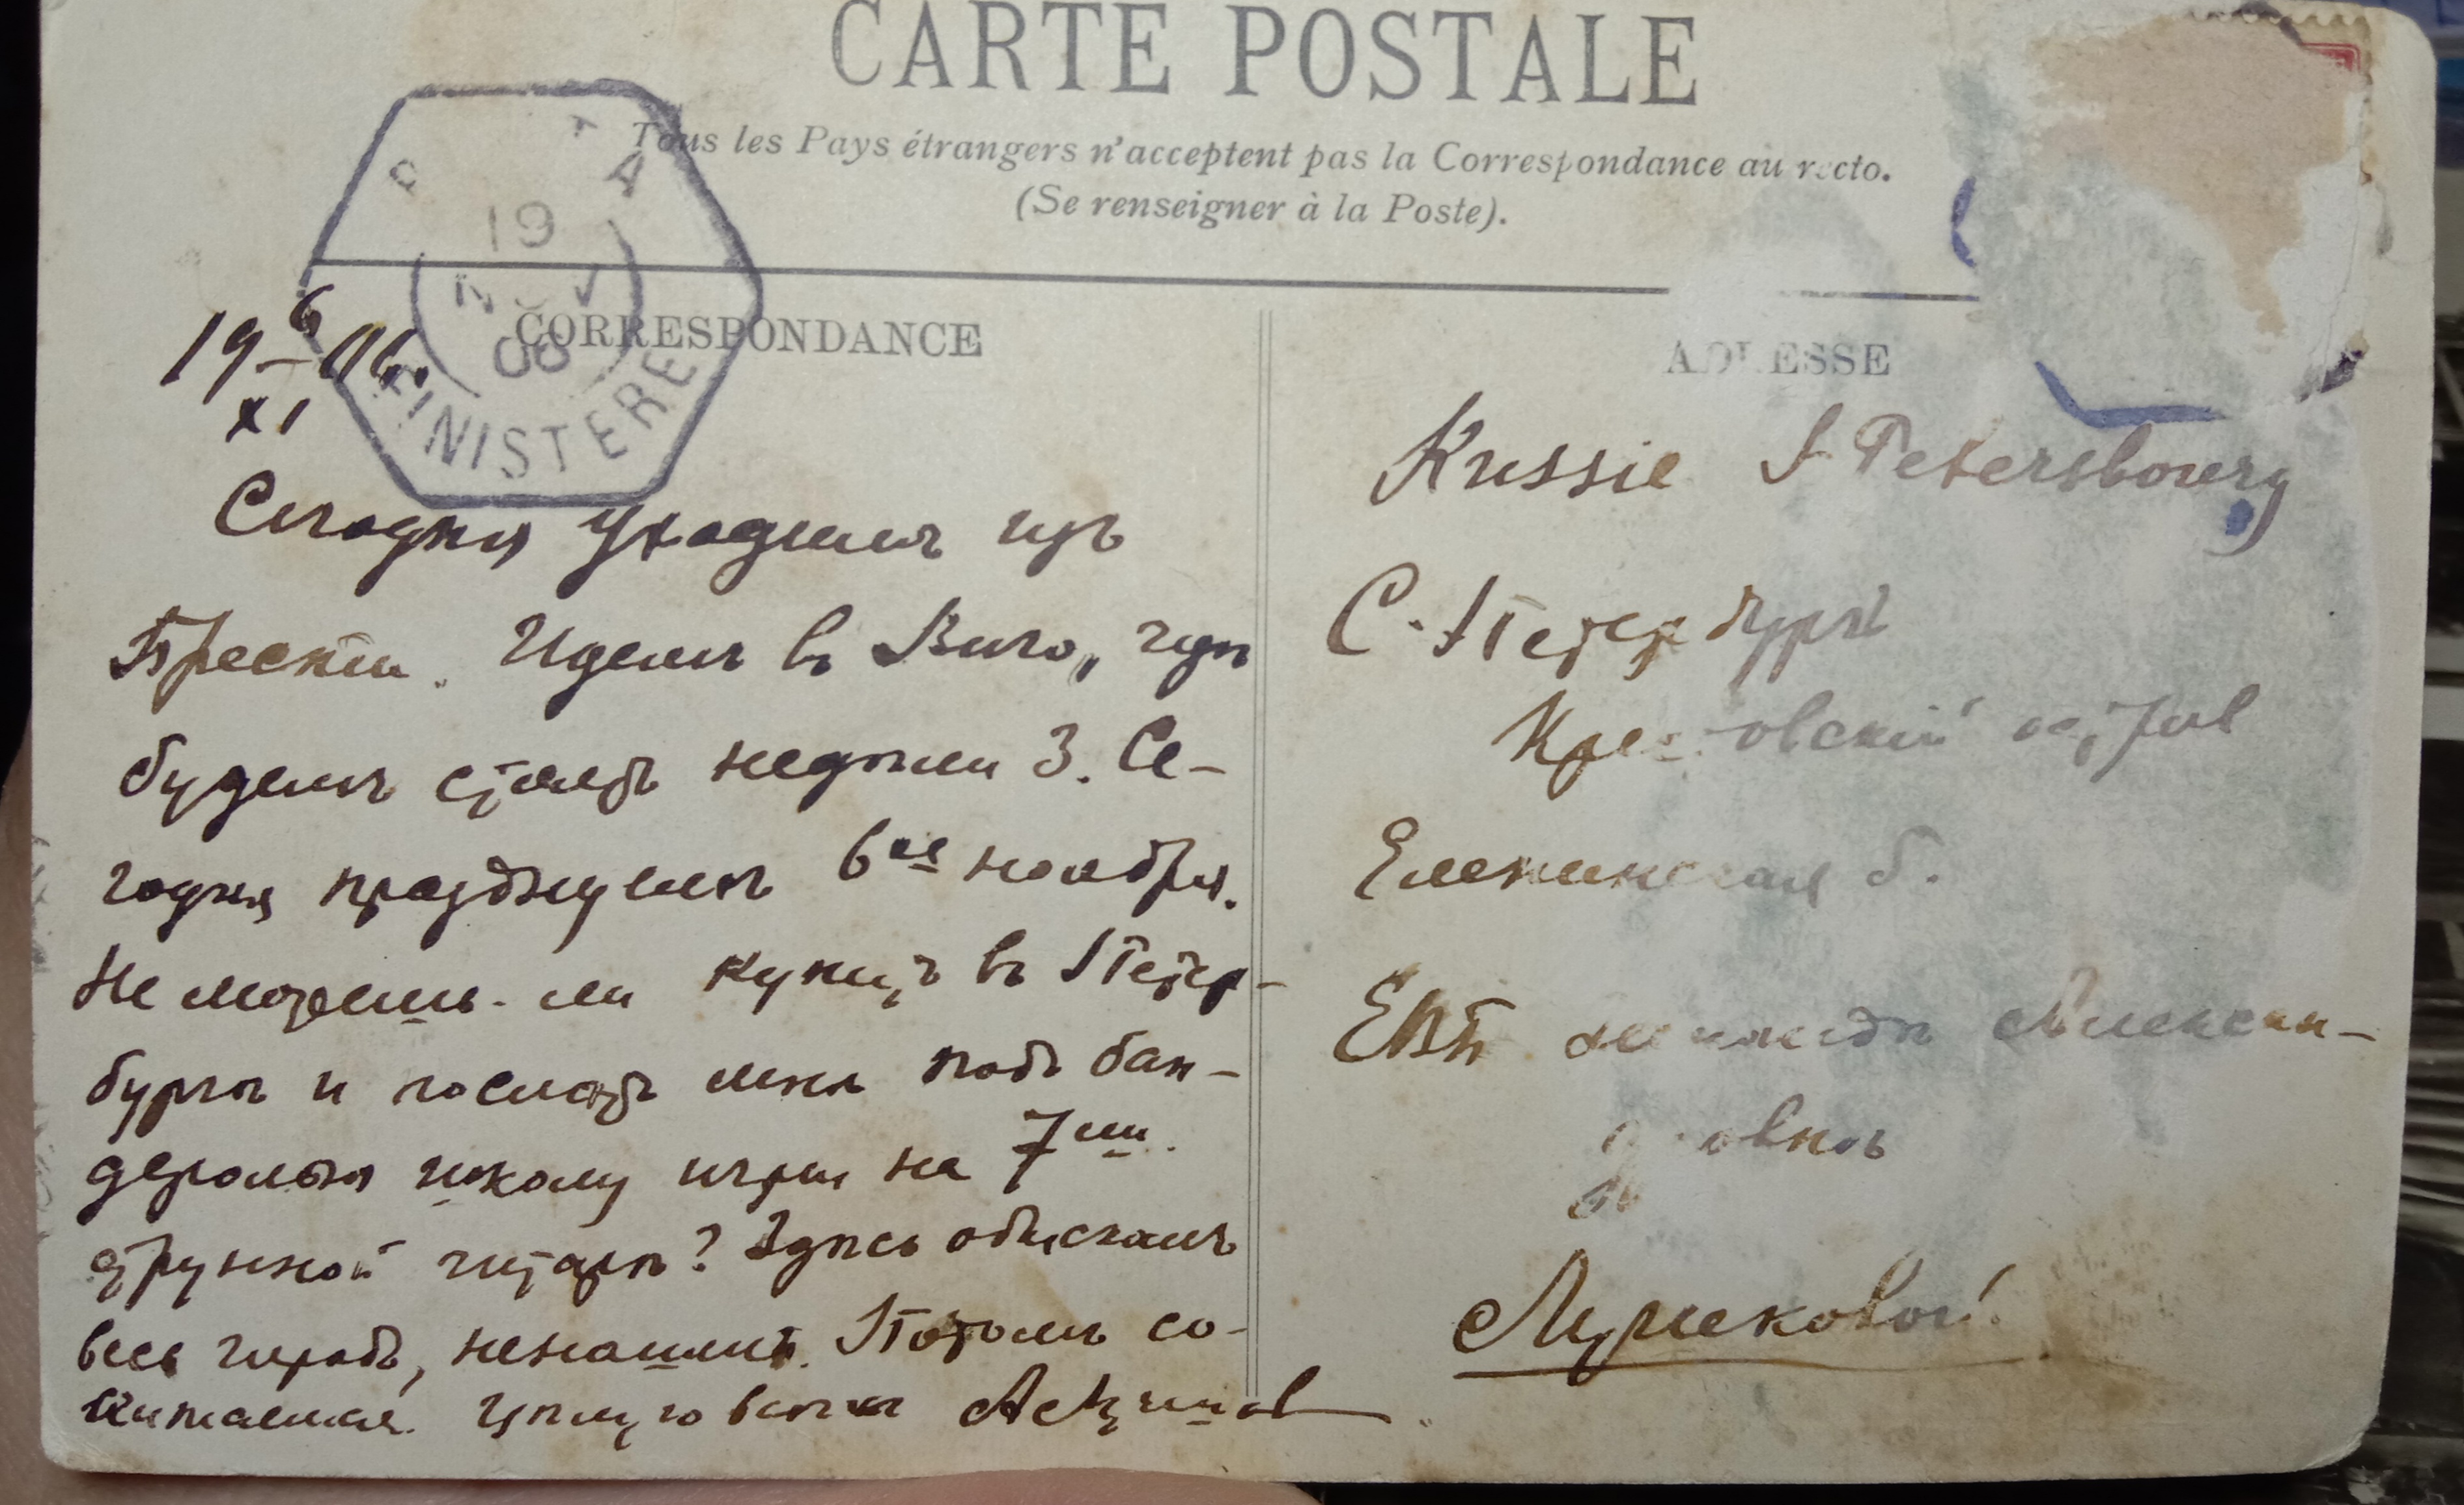 CARTE POSTALE
Tous les Pays étrangers n'acceptent pas la Correspondance au recto.
(Se renseigner à la Poste).
19
NOV
06
FINISTERE
CORRESPONDANCE
ADRESSE
19 6/XI 06.
Сегодня уходимъ изъ
Бреста. Идемъ въ Виго, гдѣ
будемъ стоять недѣли 3. Се-
годня празднуемъ 6ое ноября.
Не можешь-ли купить въ Петер-
бургѣ и послать мнѣ подъ бан-
деролью школу игры на 7ми
струнной гитарѣ? Здѣсь обыскалъ
весь городъ, не нашелъ. Потомъ со-
считаемся. Цѣлую
Russie S Petersbourg
С.-Петербургъ
Крестовскій островъ
Еленинская
ЕВБ
Александ-
ровнѣ